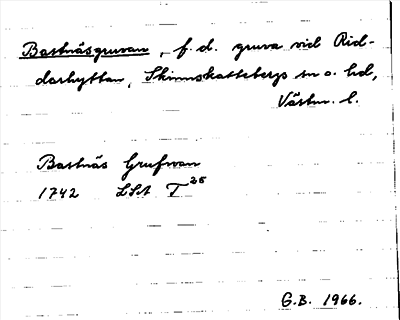 Bastnäsgruvan, f.d. gruva vid Rid-
darhyttan, Skinnskattebergs sn o. hd,
Västm. l.
Bastnäs Grufwan
1742 LSA T 26
G.B. 1966.